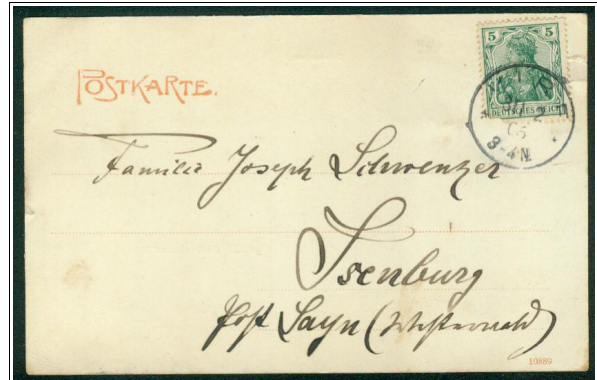 POSTKARTE.
5 5
DEUTSCHES REICH
3-4N
Familie Joseph Schwenzer
Isenburg
Post Sayn (Westerwald)
10889